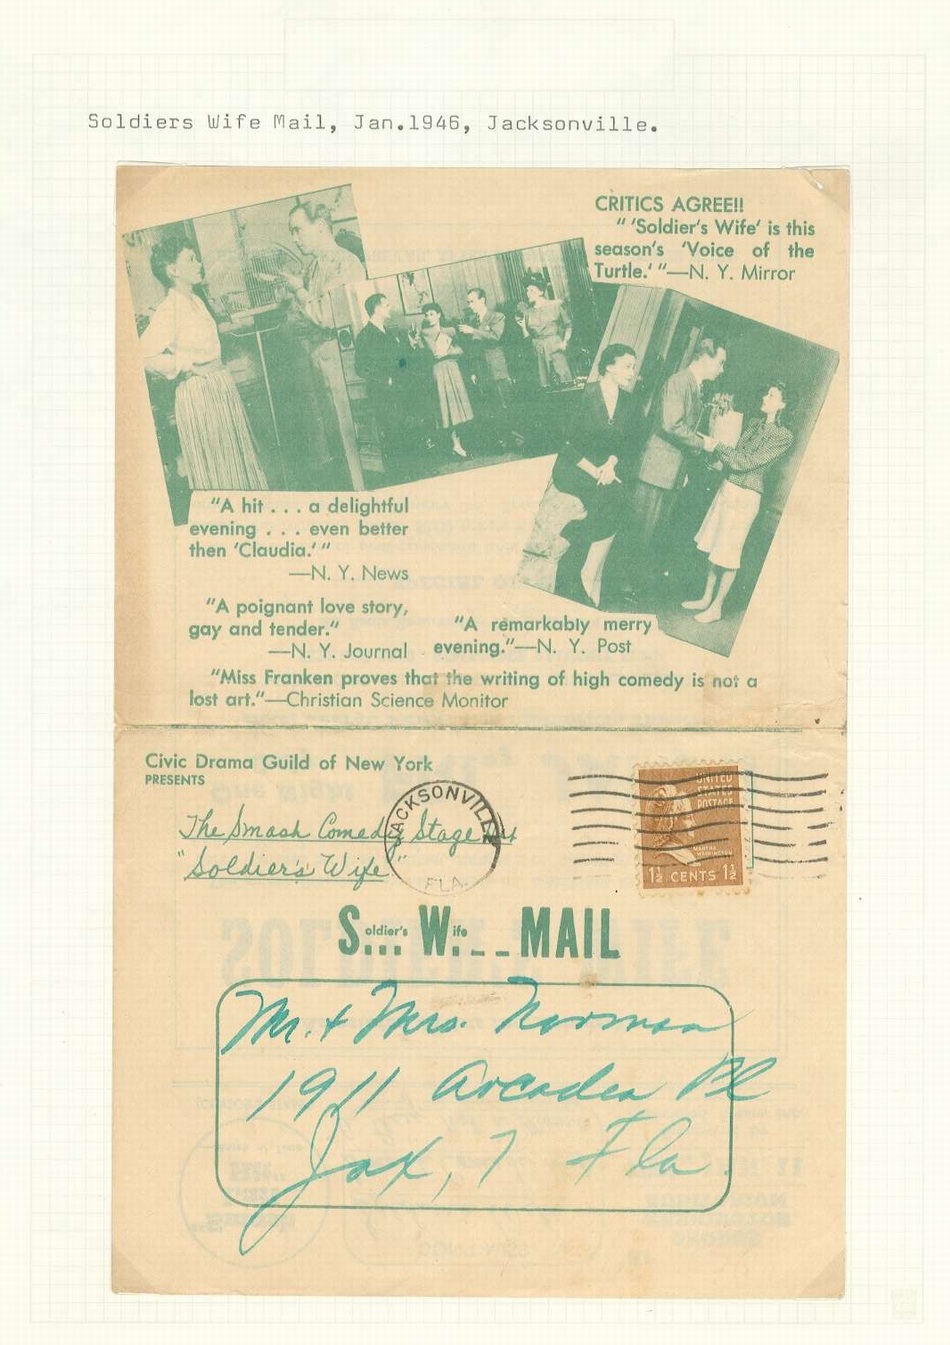 Soldiers Wife Mail, Jan.1946, Jacksonville.
CRITICS AGREE!!
" 'Soldier's Wife' is this
season's 'Voice of the
Turtle.' "—N. Y. Mirror
"A hit . . . a delightful
evening . . . even better
then 'Claudia.' "
—N. Y. News
"A poignant love story,
gay and tender."
—N. Y. Journal
"A remarkably merry
evening."—N. Y. Post
"Miss Franken proves that the writing of high comedy is not a
lost art."—Christian Science Monitor
Civic Drama Guild of New York
PRESENTS
The Smash Comedy Stage Hit
"Soldier's Wife"
JACKSONVILLE
FLA.
UNITED
STATES
POSTAGE
MARTHA
WASHINGTON
1½ CENTS 1½
Soldier's... Wife _ _ MAIL
Mr. & Mrs. Norman
1911 Arcadia Pl
Jax, 7 Fla.